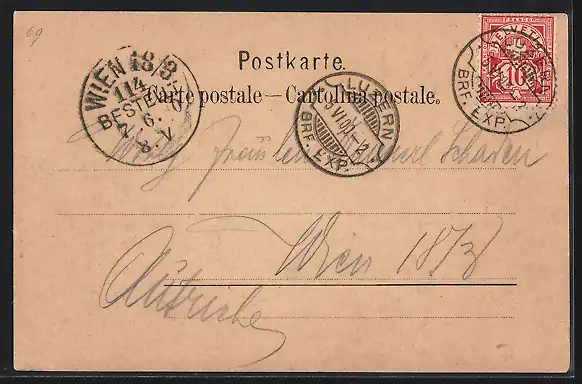 69
Postkarte.
Carte postale — Cartolina postale.
WIEN 18/3
114
BESTELLT
6.
8. V
LUZERN
VI.00.
BRF. EXP.
HELVETIA
FRANCO
10
LUZERN
BRF. EXP.
Fräulein Schaden
Wien 18/3
Autriche